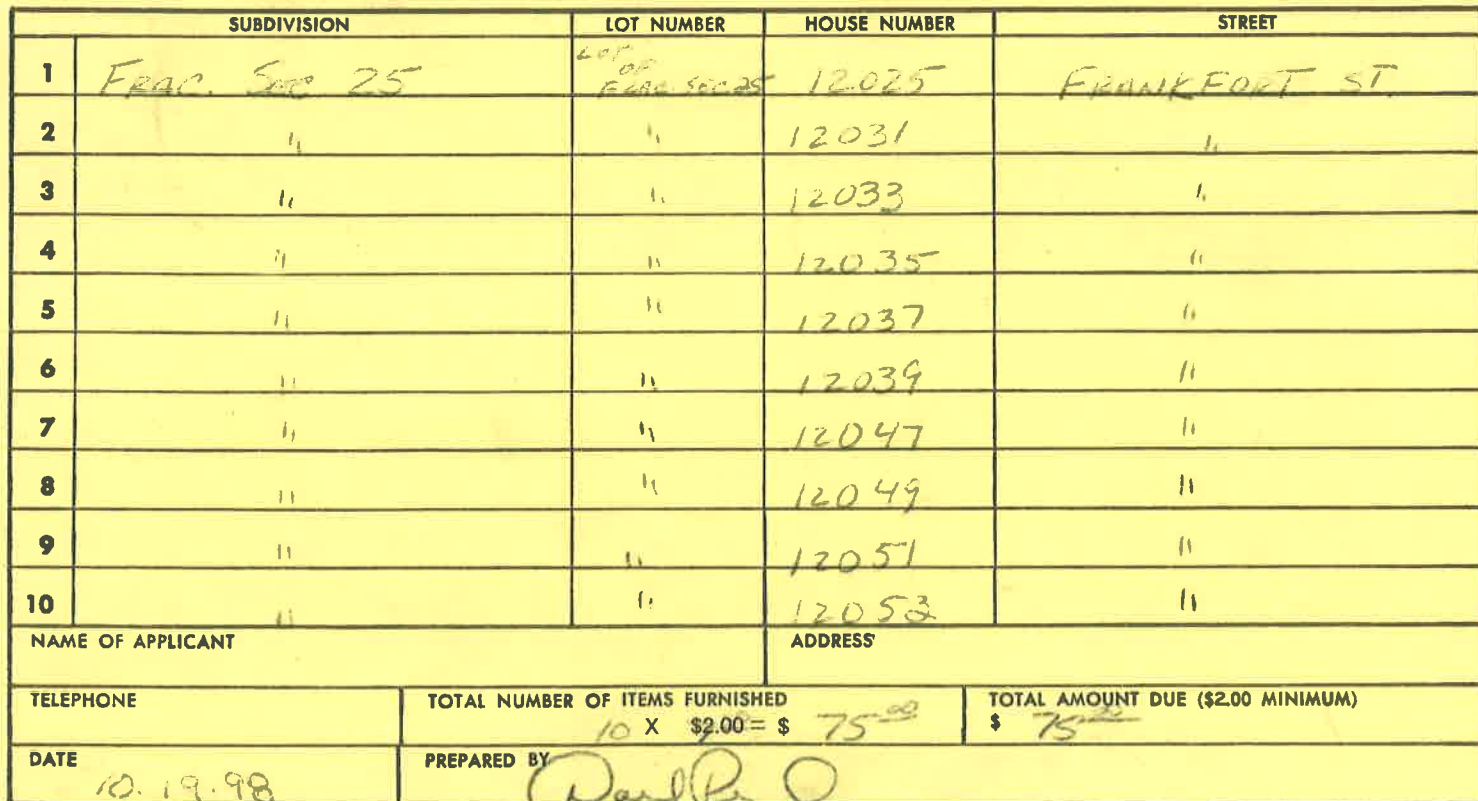 SUBDIVISION LOT NUMBER HOUSE NUMBER STREET
1 FRAC. SEC 25 LOT OF FRAC SEC 25 12025 FRANKFORT ST.
2 " " 12031 "
3 " " 12033 "
4 " " 12035 "
5 " " 12037 "
6 " " 12039 "
7 " " 12047 "
8 " " 12049 "
9 " " 12051 "
10 " " 12053 "
NAME OF APPLICANT ADDRESS
TELEPHONE TOTAL NUMBER OF ITEMS FURNISHED TOTAL AMOUNT DUE ($2.00 MINIMUM)
10 X $2.00 = $ 75.00 $ 75.00
DATE PREPARED BY
10.19.98